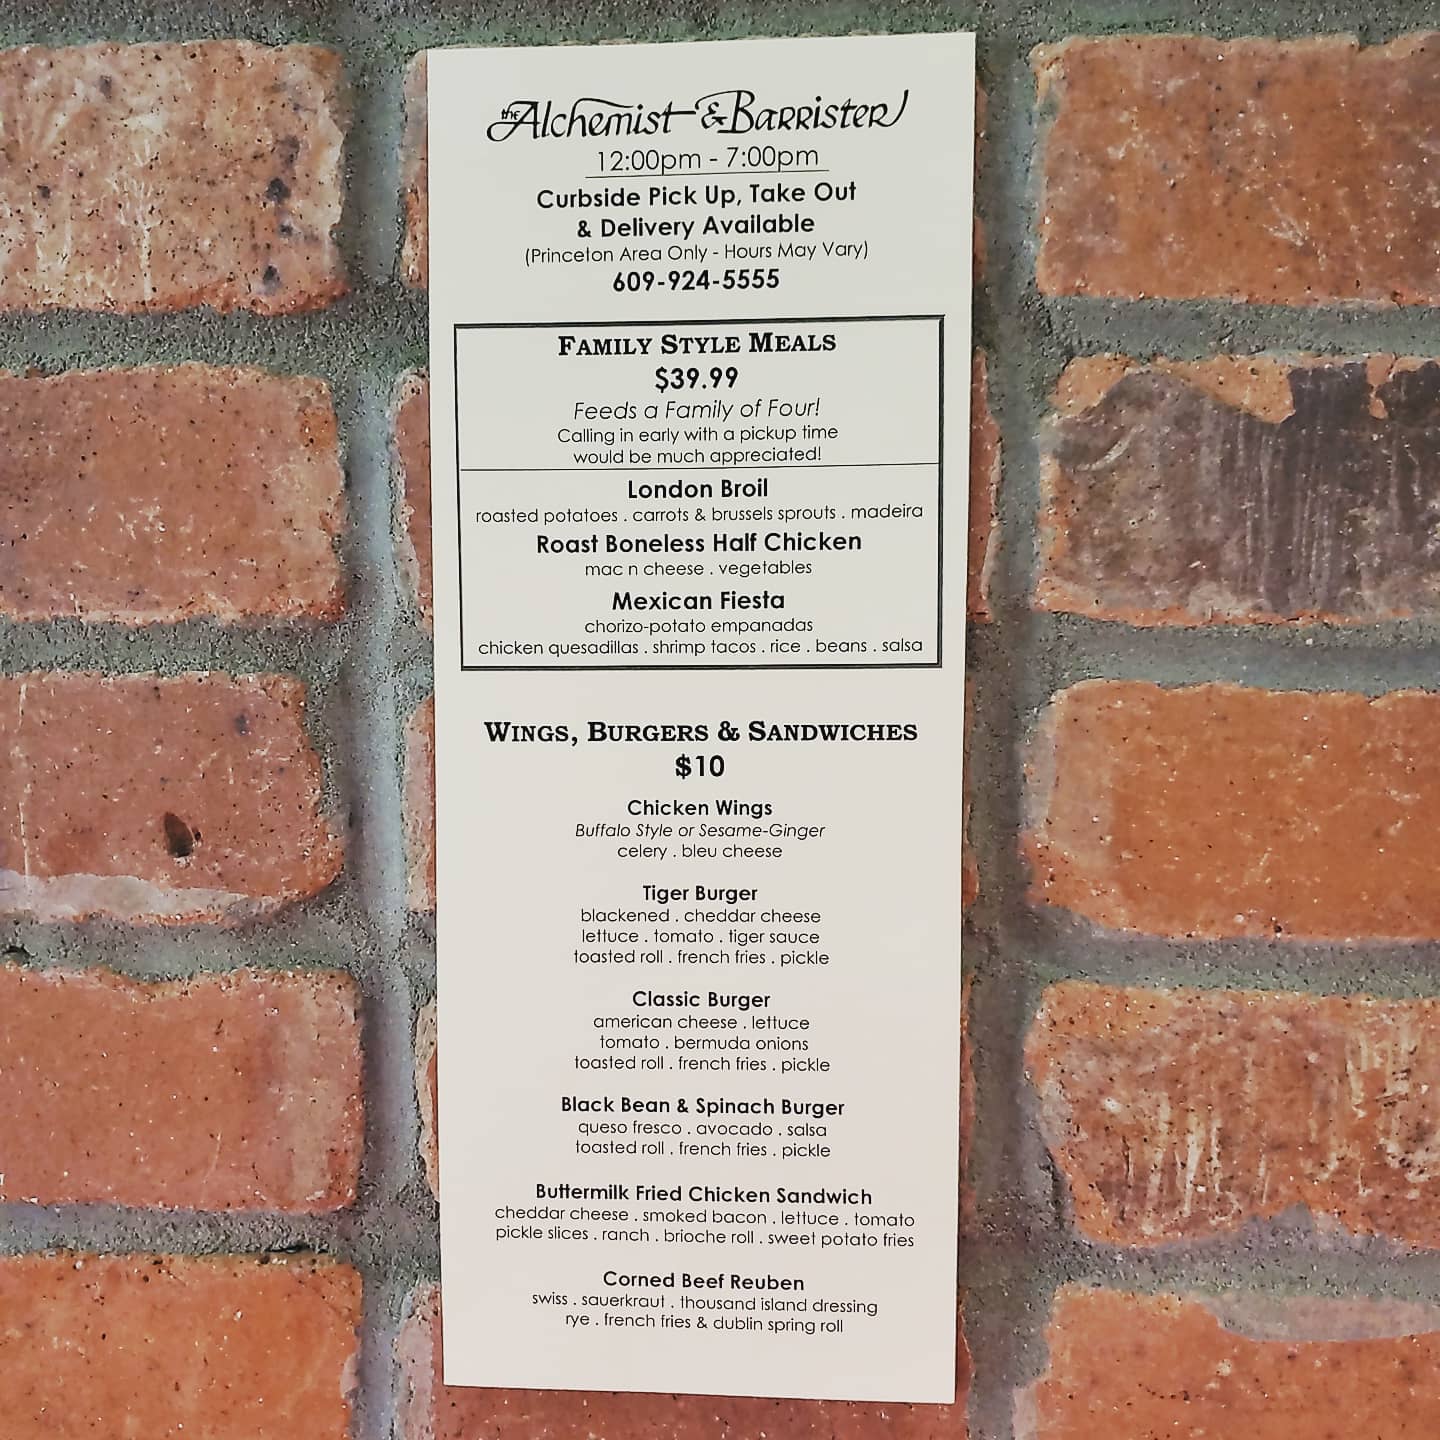 the Alchemist & Barrister
12:00pm - 7:00pm
Curbside Pick Up, Take Out
& Delivery Available
(Princeton Area Only - Hours May Vary)
609-924-5555
FAMILY STYLE MEALS
$39.99
Feeds a Family of Four!
Calling in early with a pickup time
would be much appreciated!
London Broil
roasted potatoes . carrots & brussels sprouts . madeira
Roast Boneless Half Chicken
mac n cheese . vegetables
Mexican Fiesta
chorizo-potato empanadas
chicken quesadillas . shrimp tacos . rice . beans . salsa
WINGS, BURGERS & SANDWICHES
$10
Chicken Wings
Buffalo Style or Sesame-Ginger
celery . bleu cheese
Tiger Burger
blackened . cheddar cheese
lettuce . tomato . tiger sauce
toasted roll . french fries . pickle
Classic Burger
american cheese . lettuce
tomato . bermuda onions
toasted roll . french fries . pickle
Black Bean & Spinach Burger
queso fresco . avocado . salsa
toasted roll . french fries . pickle
Buttermilk Fried Chicken Sandwich
cheddar cheese . smoked bacon . lettuce . tomato
pickle slices . ranch . brioche roll . sweet potato fries
Corned Beef Reuben
swiss . sauerkraut . thousand island dressing
rye . french fries & dublin spring roll